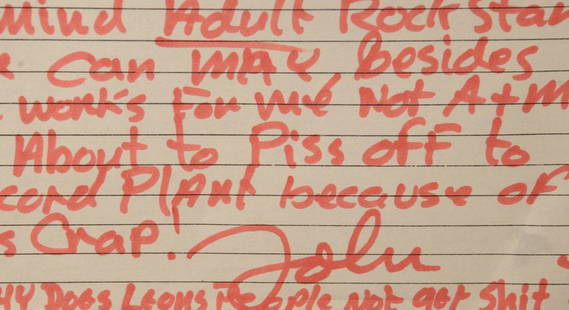 Mind Adult Rock Star
Can MIX besides
works for me Not A+M
About to Piss off to
cord Plant because of
s Crap! John
HY Does Leons People Not get Shit